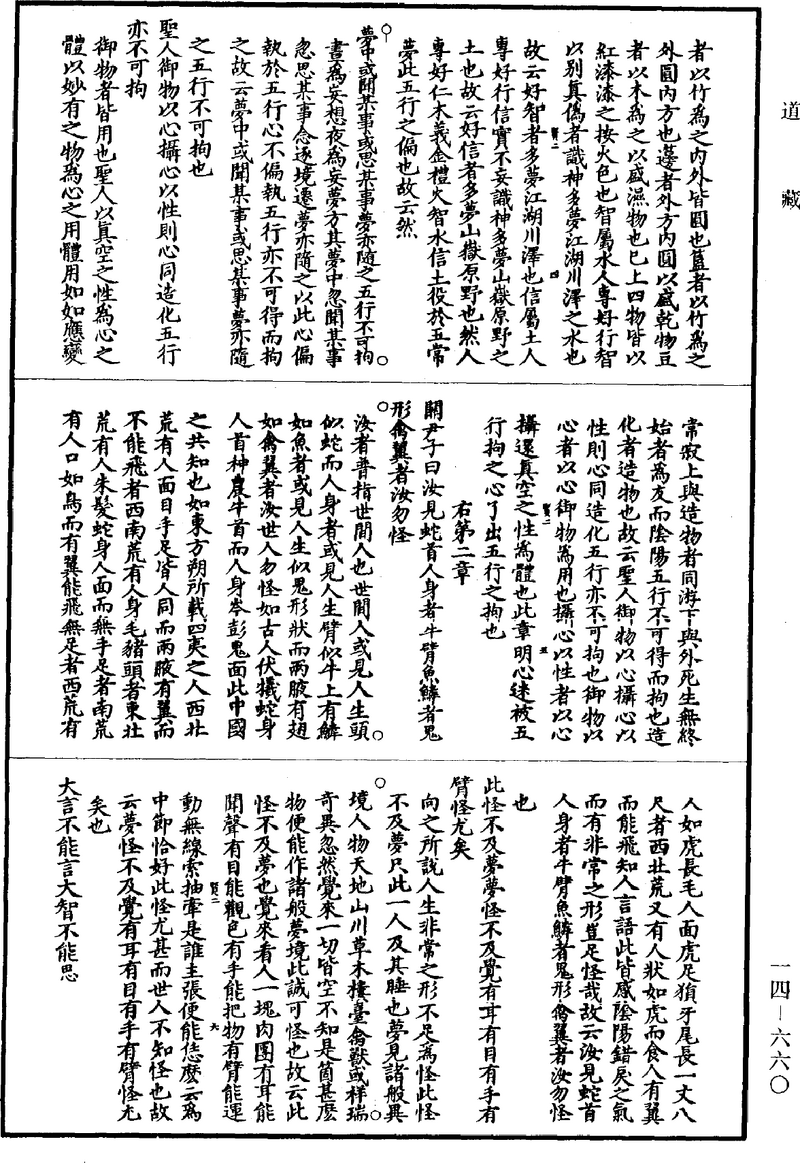 道藏
者以竹為之內外皆圓也簠者以竹為之
外圓內方也籩者外方內圓以盛乾物豆
者以木為之以盛濕物也已上四物皆以
紅漆漆之按火色也智屬水人專好行智
以別真偽者識神多夢江湖川澤之水也
故云好智者多夢江湖川澤也信屬土人
專好行信實不妄識神多夢山嶽原野之
土也故云好信者多夢山嶽原野也然人
專好仁木義金禮火智水信土役於五常
夢此五行之偏也故云然
夢中或聞某事或思某事夢亦隨之五行不可拘
晝為妄想夜為妄夢方其夢中忽聞某事
忽思某事念逐境遷夢亦隨之以此心偏
執於五行心不偏執五行亦不可得而拘
之故云夢中或聞某事或思某事夢亦隨
之五行不可拘也
聖人御物以心攝心以性則心同造化五行
亦不可拘
御物者皆用也聖人以真空之性為心之
體以妙有之物為心之用體用如如應變
常寂上與造物者同游下與外死生無終
始者為友而陰陽五行不可得而拘也造
化者造物也故云聖人御物以心攝心以
性則心同造化五行亦不可拘也御物以
心者以心御物為用也攝心以性者以心
攝還真空之性為體也此章明心迷被五
行拘之心了出五行之拘也
右第二章
關尹子曰汝見蛇首人身者牛臂魚鱗者鬼
形禽翼者汝勿怪
汝者普指世間人也世間人或見人生頭
似蛇而人身者或見人生臂似牛上有鱗
如魚者或見人生似鬼形狀而兩腋有翅
如禽翼者汝世人勿怪如古人伏犧蛇身
人首神農牛首而人身岑彭鬼面此中國
之共知也如東方朔所載四夷之人西北
荒有人面目手足皆人同而兩腋有翼而
不能飛者西南荒有人身毛豬頭者東北
荒有人朱髮蛇身人面而無手足者南荒
有人口如鳥而有翼能飛無足者西荒有
人如虎長毛人面虎足狽牙尾長一丈八
尺者西北荒又有人狀如虎而食人有翼
而能飛知人言語此皆感陰陽錯戾之氣
而有非常之形豈足怪哉故云汝見蛇首
人身者牛臂魚鱗者鬼形禽翼者汝勿怪
也
此怪不及夢夢怪不及覺有耳有目有手有
臂怪尤矣
向之所說人生非常之形不足為怪此怪
不及夢只此一人及其睡也夢見諸般異
境人物天地山川草木樓臺禽獸或祥瑞
奇異忽然覺來一切皆空不知是箇甚麼
物便能作諸般夢境此誠可怪也故云此
怪不及夢也覺來看人一塊肉團有耳能
聞聲有目能觀色有手能把物有臂能運
動無線索抽牽是誰主張便能恁麼云為
中節恰好此怪尤甚而世人不知怪也故
云夢怪不及覺有耳有目有手有臂怪尤
矣也
大言不能言大智不能思
一四—六六〇